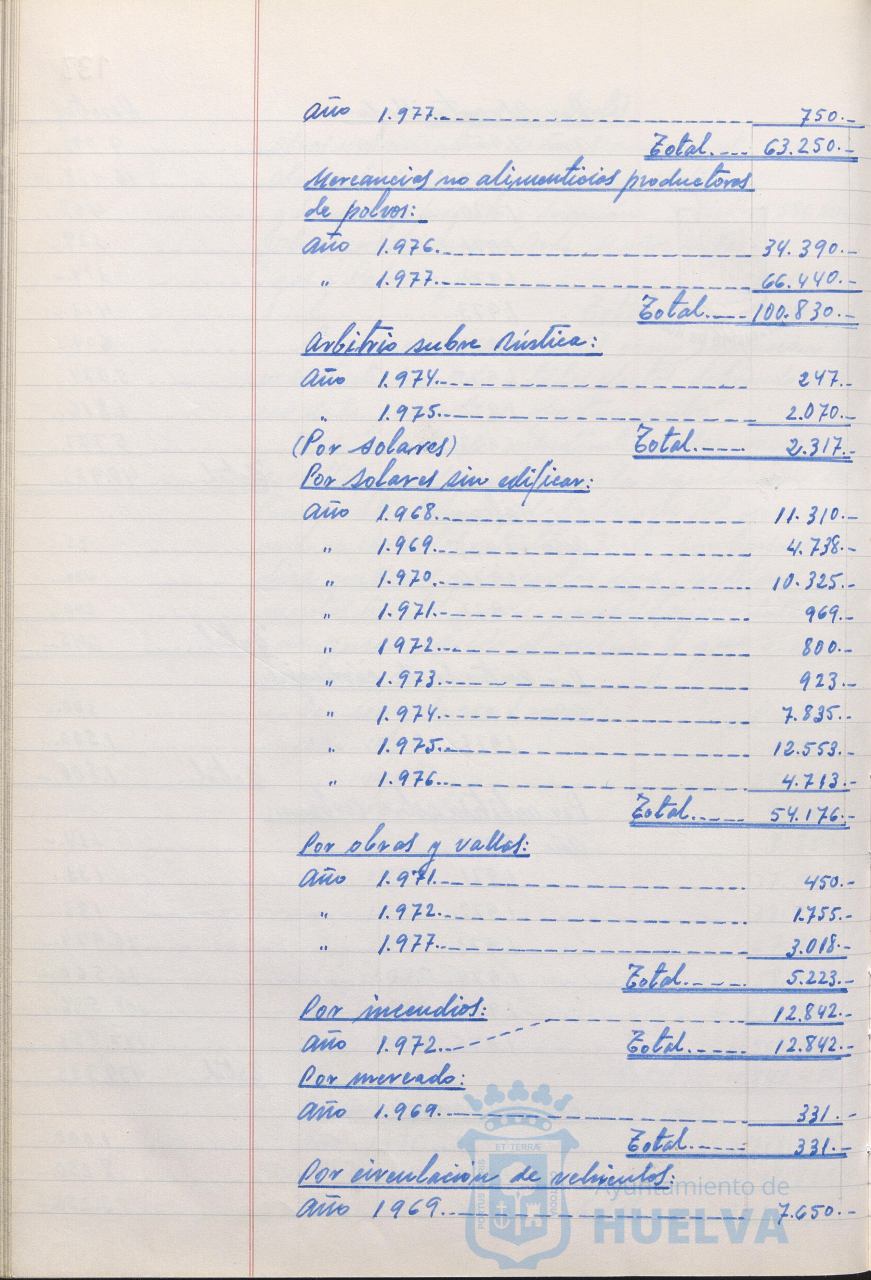 Año 1.977.-------------- 750.-
Total.---- 63.250.-
Mercancias no alimenticias productoras
de polvos:
Año 1.976.-------------- 34.390.-
" 1.977.-------------- 66.440.-
Total.---- 100.830.-
Arbitrio sobre Rústica:
Año 1.974.-------------- 247.-
" 1.975.-------------- 2.070.-
(Por solares) Total.---- 2.317.-
Por solares sin edificar:
Año 1.968.-------------- 11.310.-
" 1.969.-------------- 4.738.-
" 1.970.-------------- 10.325.-
" 1.971.-------------- 969.-
" 1972.-------------- 800.-
" 1.973.-------------- 923.-
" 1.974.-------------- 7.835.-
" 1.975.-------------- 12.553.-
" 1.976.-------------- 4.713.-
Total.---- 54.176.-
Por obras y vallas:
Año 1.971.-------------- 450.-
" 1.972.-------------- 1.755.-
" 1.977.-------------- 3.018.-
Total.---- 5.223.-
Por incendios: -------------- 12.842.-
Año 1.972.---- Total.---- 12.842.-
Por mercado:
Año 1.969.-------------- 331.-
Total.---- 331.-
Por circulación de vehículos:
Año 1969.-------------- 7.650.-
ET TERRÆ
PORTUS MARIS
CUSTODIA
Ayuntamiento de
HUELVA